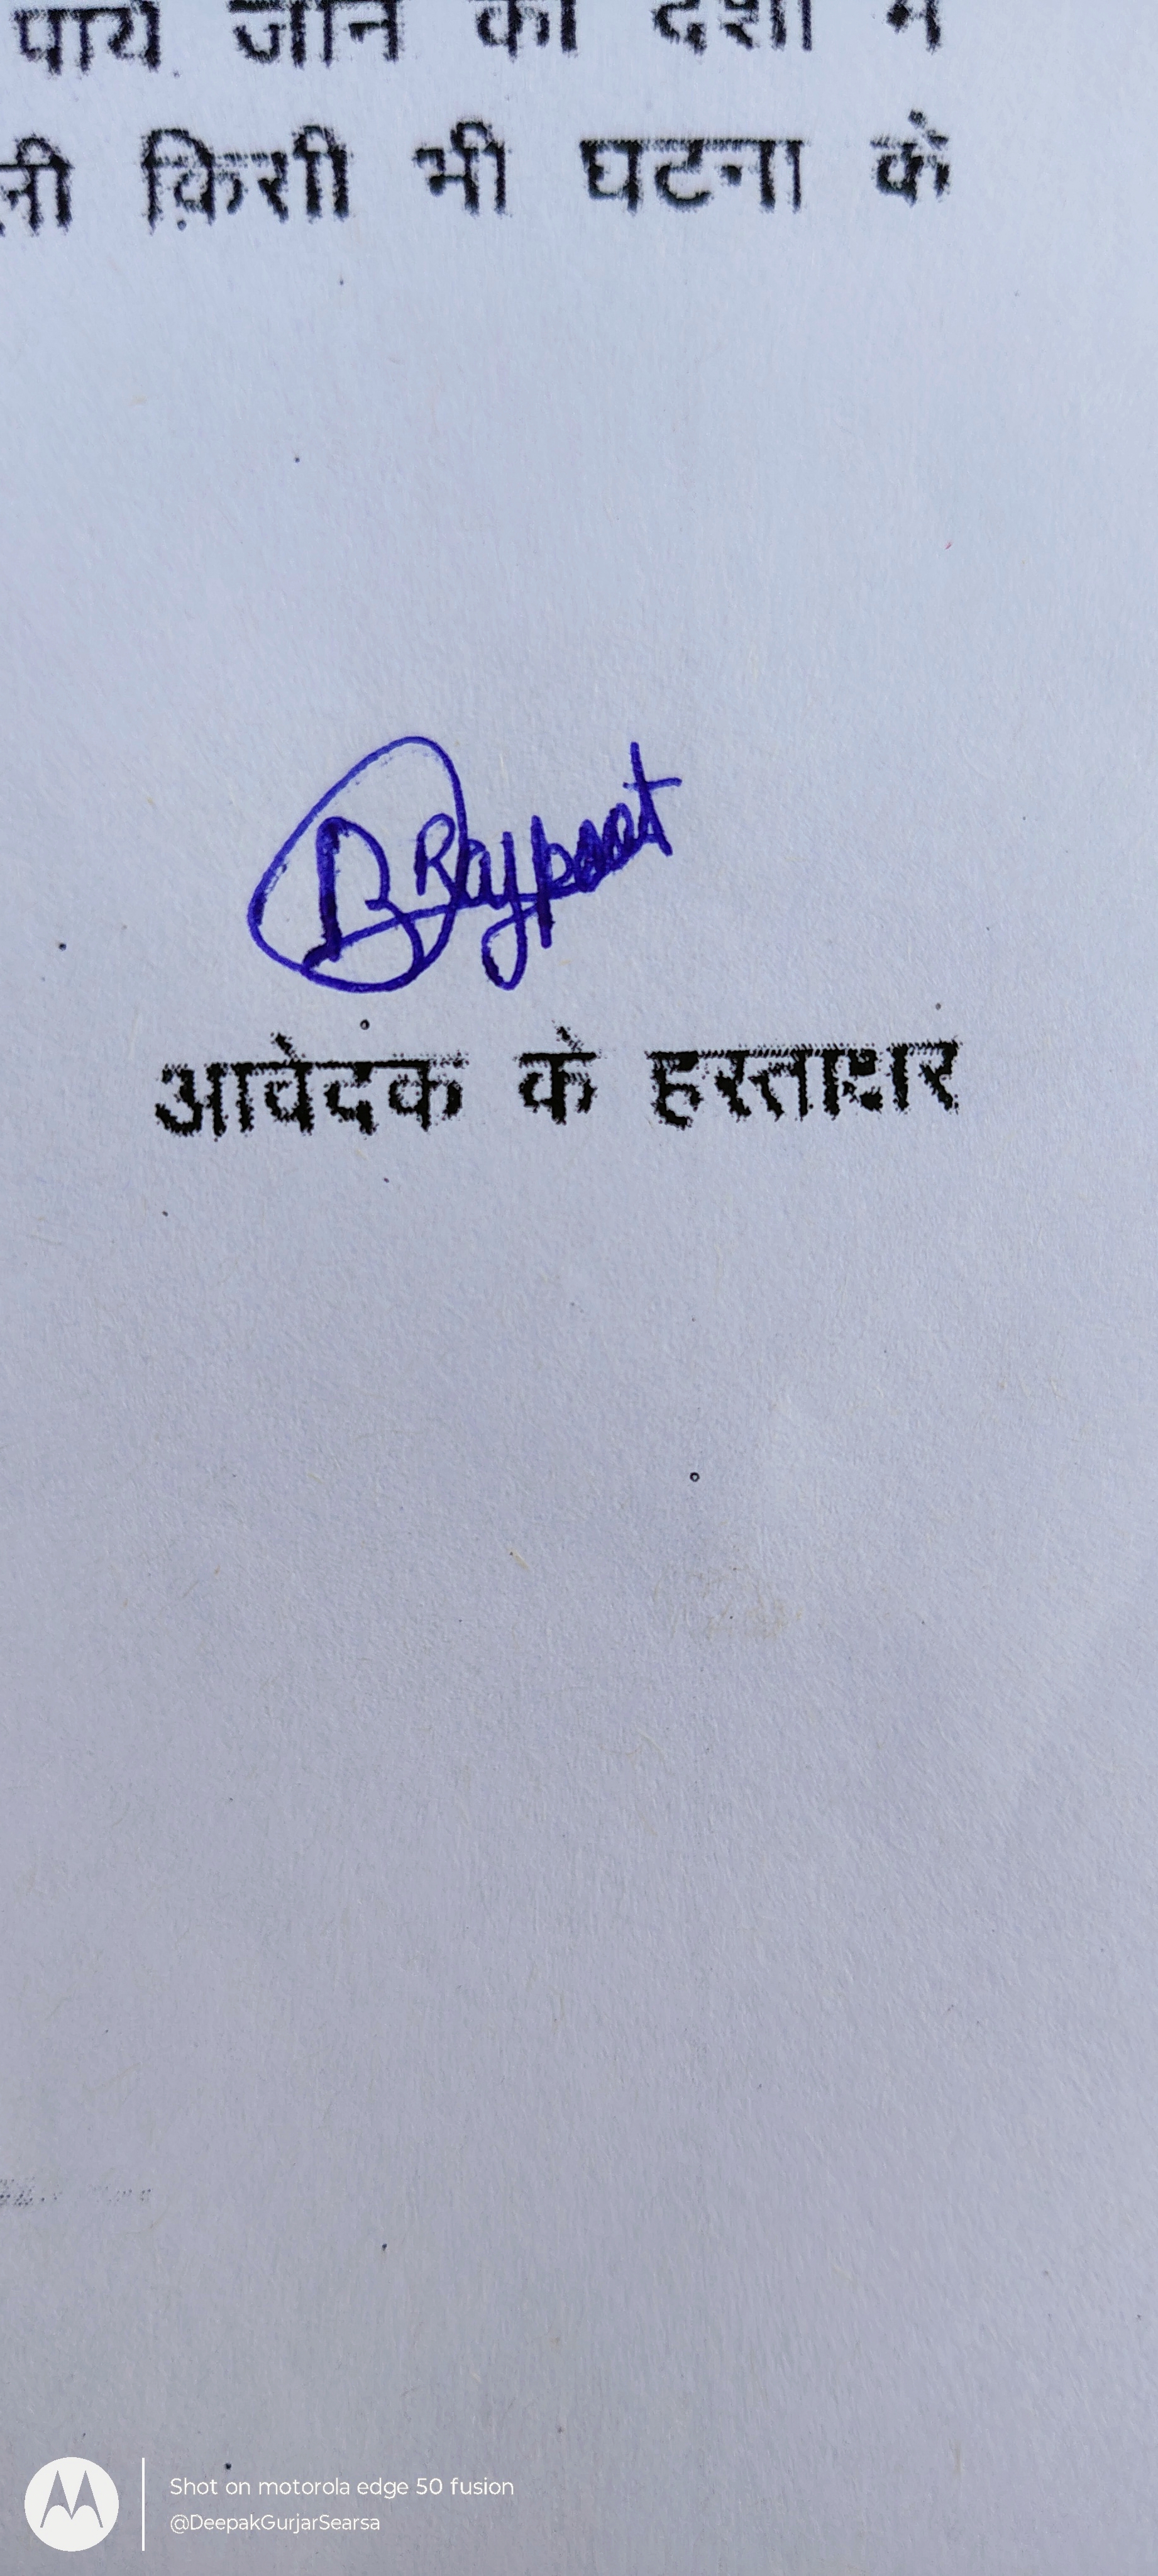 पाये जाने की दशा में
किसी भी घटना के
D Rajpoot
आवेदक के हस्ताक्षर
Shot on motorola edge 50 fusion
@DeepakGurjarSearsa